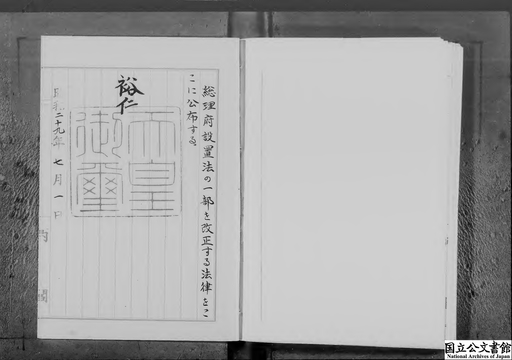 総理府設置法の一部を改正する法律をこ
こに公布する
裕仁
天皇
御璽
昭和二十九年七月一日
内閣
国立公文書館
National Archives of Japan